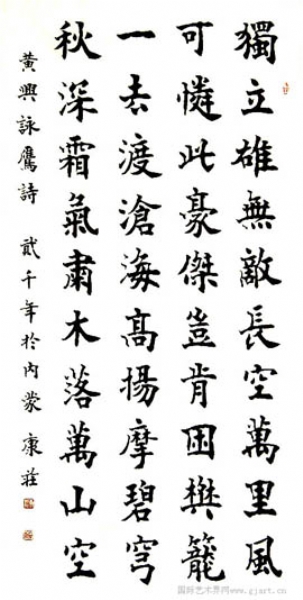 獨立雄無敵長空萬里風
可憐此豪傑豈肯困樊籠
一去渡滄海高揚摩碧穹
秋深霜氣肅木落萬山空
黃興詠鷹詩 貳千年於內蒙 康莊
国际艺术界网www.gjart.cn